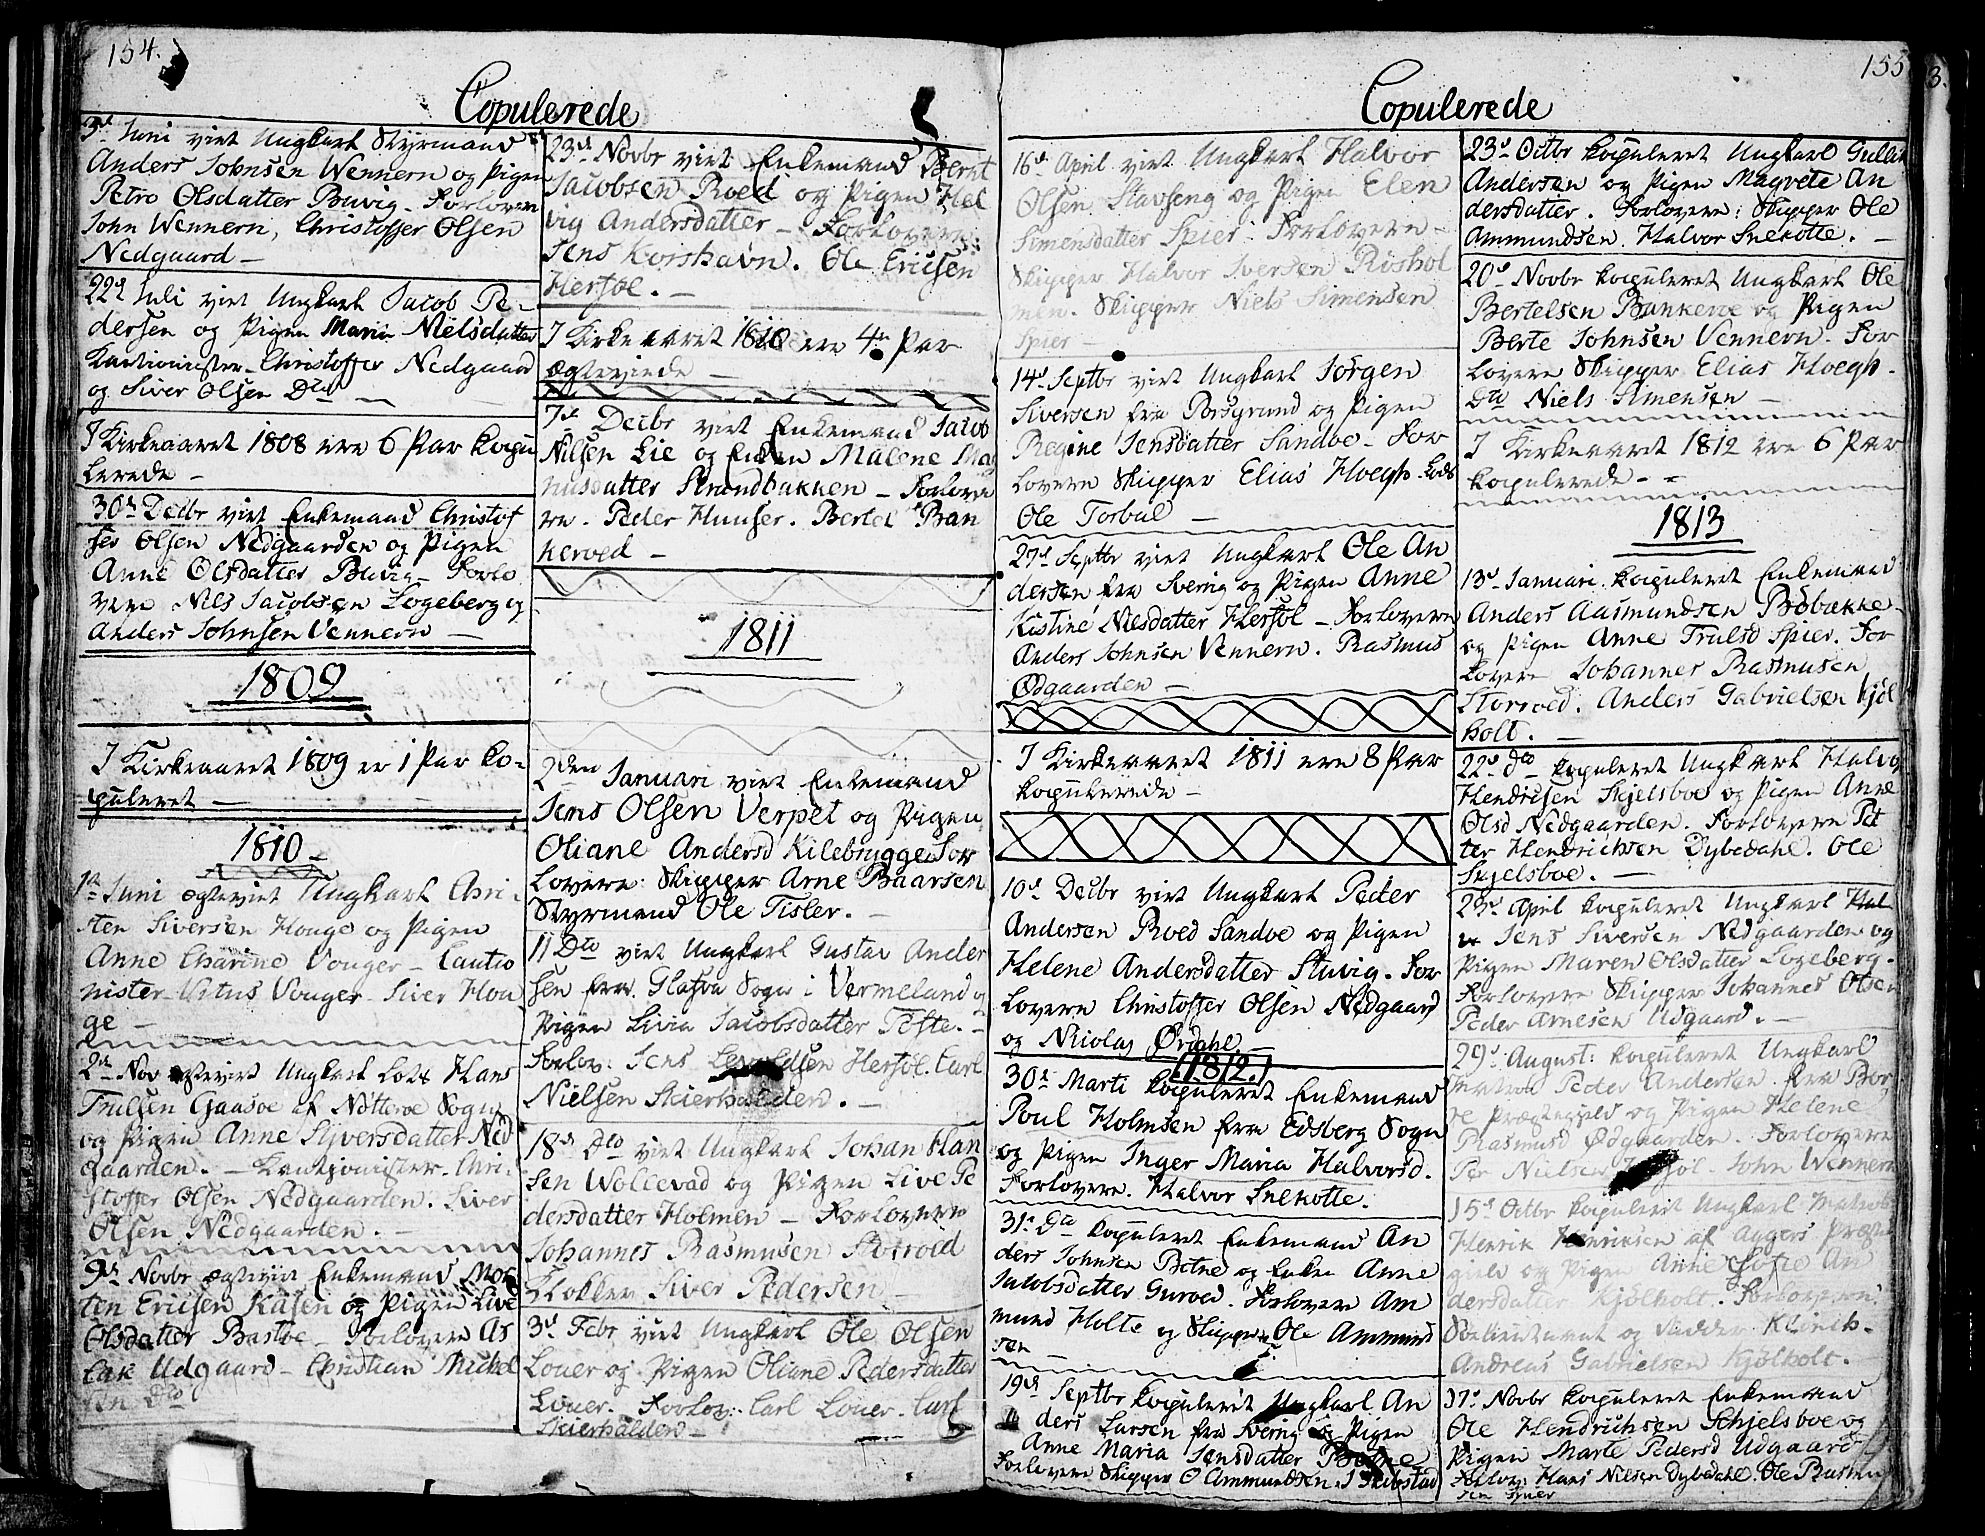 154.
Copulerede
3d Juni viet Ungkarl Styrmand
Anders Johnsen Wennern og Pigen
Petro Olsdatter Buvig. Forlovere
John Wennern, Christoffer Olsen
Nedgaard –
22d Juli viet Ungkarl Jacob Pe-
dersen og Pigen Maria Nielsdatter
Kautionister. Christoffer Nedgaard
og Siver Olsen Dto –
I Kirkeaaret 1808 ere 6 Par Kopu
lerede –
30d Decbr viet Enkemand Christof
fer Olsen Nedgaarden og Pigen
Anne Olsdatter Buvig – Forlo
vere Niels Jacobsen Logeberg og
Anders Johnsen Vennern –
1809
I Kirkeaaret 1809 er 1 Par ko-
puleret –
1810 –
1st Juni ægteviet Ungkarl Chri-
sten Siversen Houge og Pigen
Anne Charine Vouger – Cautio
nister Vitus Vouger – Siver Hou
ge –
2den Nov ægteviet Ungkarl Lods Hans
Trulsen Gaasøe af Nøtterøe Sogn
og Pigen Anne Syversdatter Ned
gaarden. – Kautjonister. Chri-
stoffer Olsen Nedgaarden. Siver
Olsen Nedgaarden. –
9d Novbr ægteviet Enkemand Mor
ten Ericsen Kasen og Pigen Live
Olsdatter Bastøe – Forlovere As
lak Udgaard – Christian Mickel
sen Dto
23d Novbr viet Enkemand Bernt
Jacobsen Roed og Pigen Hel
vig Andersdatter – Forlovere:
Jens Korshavn. Ole Ericsen
Hersøl. –
I Kirkeaaret 1810 ere 4re Par
ægteviede –
7d Decbr viet Enkemand Jacob
Nilsen Lie og Enken Malene Mag
nusdatter Strandbakken – Forlove
re. Peder Hunser. Bertel Ban
keroed –
1811
2den Januari viet Enkemand
Jens Olsen Verpet og Pigen
Oliane Andersd Kilebrygge. For
lovere: Skipper Arne Baarsen
Styrmand Ole Tisler. –
11 Dto viet Ungkarl Gustav Ander
sen fra Glasva Sogn i Vermeland og
Pigen Livia Jacobsdatter Tofte. –
Forlov: Jens Hersøl. Carl
Nielsen Skierhalden. –
18d Dto viet Ungkarl Johan Han
sen Wollevad og Pigen Live Pe
dersdatter Holmen – Forlovere
Johannes Rasmusen Storroed
Klokker Siver Pedersen –
3d Febr viet Ungkarl Ole Olsen
Louer og Pigen Oliane Pedersdatter
Louer. Forlov: Carl Louer. Carl
Skierhalden –
155
Copulerede
16d April viet Ungkarl Halvor
Olsen Stavseng og Pigen Elen
Simensdatter Spier – Forlovere –
Skipper Halvor Iversen Røshol
men. Skipper Niels Simensen
Spier –
14d Septbr viet Ungkarl Jørgen
Siversen fra Porsgrund og Pigen
Regine Jensdatter Sandøe – For
lovere Skipper Elias Hoegh. Lods
Ole Torbal –
27d Septbr viet Ungkarl Ole An
dersen fra Sverig og Pigen Anne
Kistine Nilsdatter Hersøl – Forlovere
Anders Johnsen Vennern. Rasmus
Ødgaarden –
I Kirkeaaret 1811 ere 8 Par
kopulerede –
10d Decbr viet Ungkarl Peder
Andersen Roed Sandøe og Pigen
Helene Andersdatter Stuvig. For
lovere Christoffer Olsen Nedgaard
og Nicolay Ørdahl –
1812.
30d Marti kopuleret Enkemand
Poul Holmsen fra Edsberg Sogn
og Pigen Inger Maria Halvorsd.
Forlovere. Halvor Snekotte.
31d Dto kopuleret Enkemand An
ders Johnsen Botne og Enken Anne
Jacobsdatter Guroed. Forlovere Am
mund Holte og Skipper Ole Ammund
sen –
19d Septbr kopuleret Ungkarl An
ders Larsen fra Sverig og Pigen
Anne Maria Jensdatter
Forlovere Skipper O Ammundsen. J Skibstad
23d Octbr kopuleret Ungkarl Gullik
Andersen og Pigen Magrete An
dersdatter. Forlovere: Skipper Ole
Ammundsen. Halvor Snekotte. –
20d Novbr kopuleret Ungkarl Ole
Bertelsen Bankeroe og Pigen
Berte Johnsen Vennern. For
lovere Skipper Elias Hoegh.
Dto Niels Simensen –
I Kirkeaaret 1812 ere 6 Par
kopulerede. –
1813
13d Januari kopuleret Enkemand
Anders Aasmundsen Brøbakke
og Pigen Anne Trulsd Spier. For
lovere Johannes Rasmusen
Storroed. Anders Gabrielsen Kjøl
holt. –
22d Dto kopuleret Ungkarl Halvor
Hendrichsen Skjelsboe og Pigen Anne
Olsd Nedgaarden. Forlovere Pet
ter Hendrichsen Dybedahl. Ole
Skjelsboe. –
23d April kopuleret Ungkarl
Jens Siversen Nedgaarden og
Pigen Maren Olsdatter Logeberg.
Forlovere Skipper Johannes Olsen
Peder Arnesen Udgaard. –
29d August: kopuleret Ungkarl
Matros Peder Andersen fra Bor
re Præstegield og Pigen Helene
Rasmusd Ødgaarden. Forlovere
Per Nielsen Hersøl John Wennern
15d Octbr kopuleret Ungkarl Matros
Henrik Henriksen af Aggers Præste
gield og Pigen Anne Sofie An
dersdatter Kjølholt. Forlovere:
og Klinch.
Andreas Gabrielsen Kjølholt. –
37d Novbr kopuleret Enkemand
Ole Hendrichsen Schjelsboe og
Pigen Marte Pedersd Udgaard
Forlov: Hans Nilsen Dybedahl. Ole Rasmu
sen Spier